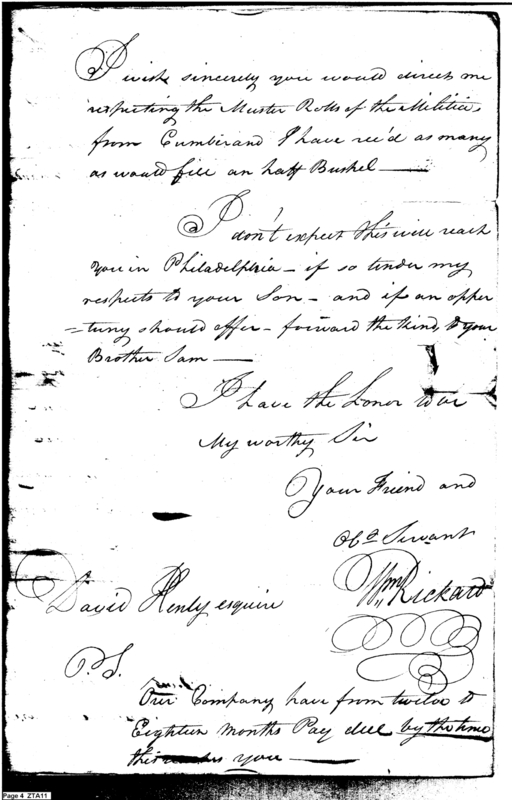 I wish sincerely you would direct me
respecting the Muster Rolls of the Militia,
from Cumberand I have rec'd as many
as would fill an half Bushel —
I don't expect this will reach
you in Philadelphia – if so tender my
respects to your Son – and if an opper
=tuny should offer – forward the kind, to your
Brother Sam —
I have the Honor to be
My worthy Sir
Your Friend and
Obt Servant
Wm Rickard
David Henly esquire
P.S.
Our Company have from twelve to
Eighteen Months Pay due by the time
this reaches you —
Page 4 ZTA11